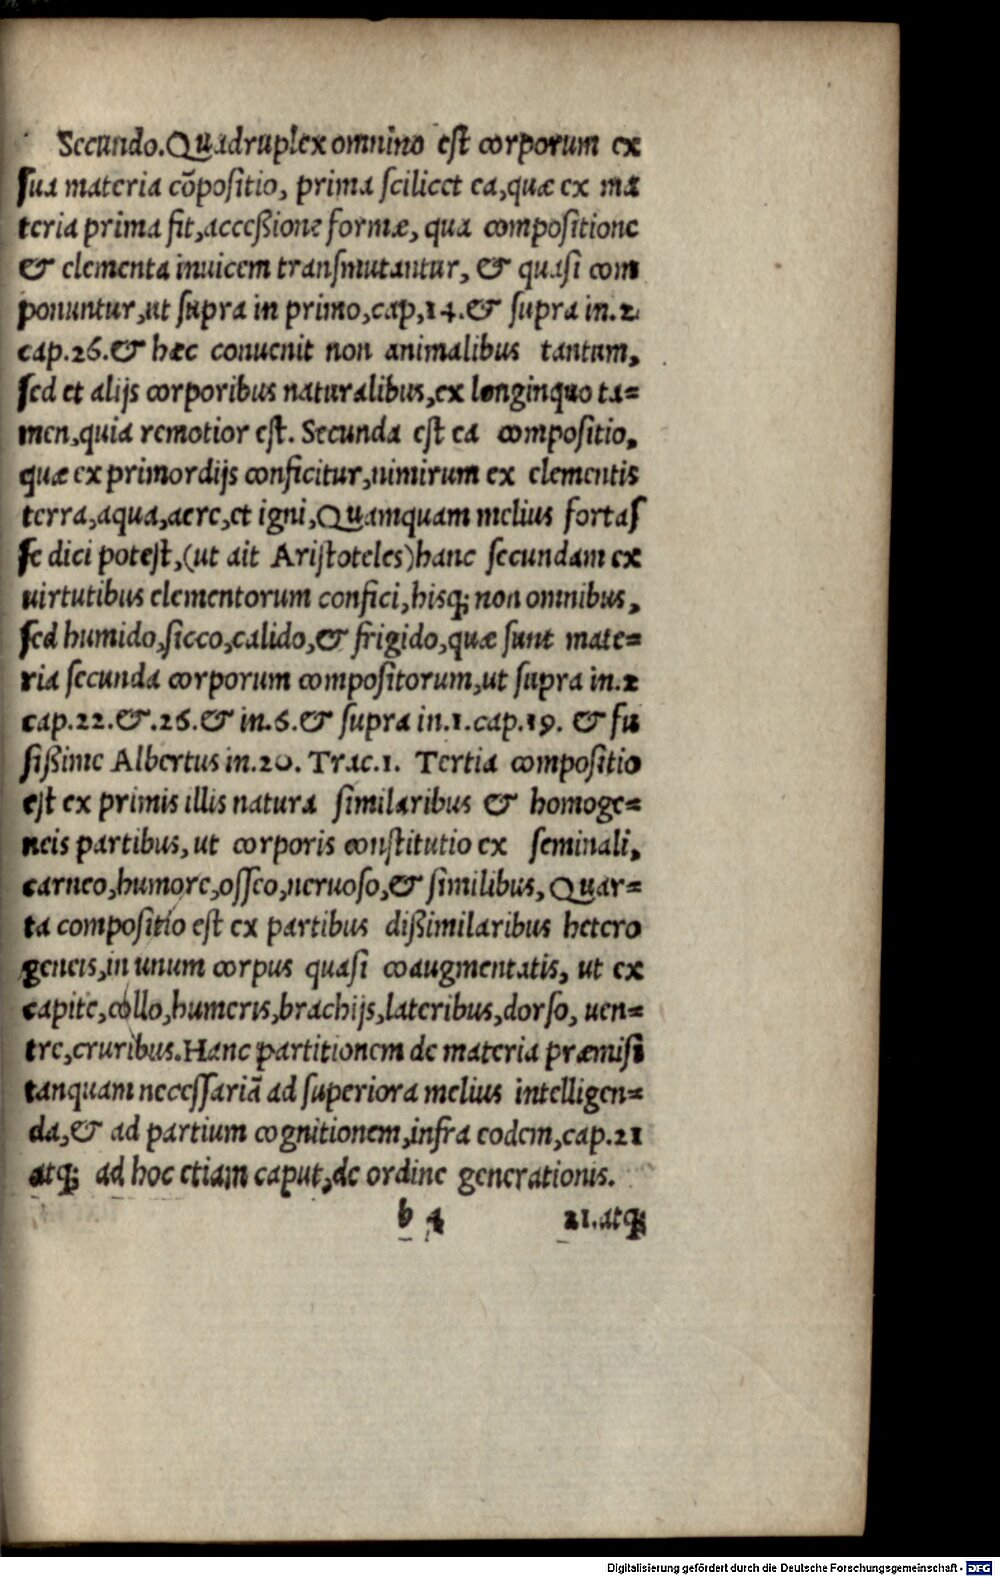 Secundo. Quadruplex omnino est corporum ex
sua materia cõpositio, prima scilicet ea, quæ ex ma
teria prima fit, accessione formæ, qua compositione
& elementa inuicem transmutantur, & quasi com
ponuntur, ut supra in primo, cap, 14. & supra in. 2.
cap. 26. & hæc conuenit non animalibus tantum,
sed et alijs corporibus naturalibus, ex longinquo ta=
men, quia remotior est. Secunda est ea compositio,
quæ ex primordijs conficitur, nimirum ex elementis
terra, aqua, aere, et igni, Quamquam melius fortas
se dici potest, (ut ait Aristoteles) hanc secundam ex
uirtutibus elementorum confici, hisq; non omnibus,
sed humido, sicco, calido, & frigido, quæ sunt mate=
ria secunda corporum compositorum, ut supra in. 2
cap. 22. &. 26. & in. 6. & supra in. 1. cap. 19. & fu
sissime Albertus in. 20. Trac. 1. Tertia compositio
est ex primis illis natura similaribus & homoge=
neis partibus, ut corporis constitutio ex seminali,
carneo, humore, osseo, neruoso, & similibus, Quar=
ta compositio est ex partibus dissimilaribus hetero
geneis, in unum corpus quasi coaugmentatis, ut ex
capite, collo, humeris, brachijs, lateribus, dorso, uen=
tre, cruribus. Hanc partitionem de materia præmisi
tanquam necessariã ad superiora melius intelligen=
da, & ad partium cognitionem, infra eodem, cap. 21
atq; ad hoc etiam caput, de ordine generationis.
b 4 21. atq;
Digitalisierung gefördert durch die Deutsche Forschungsgemeinschaft - DFG